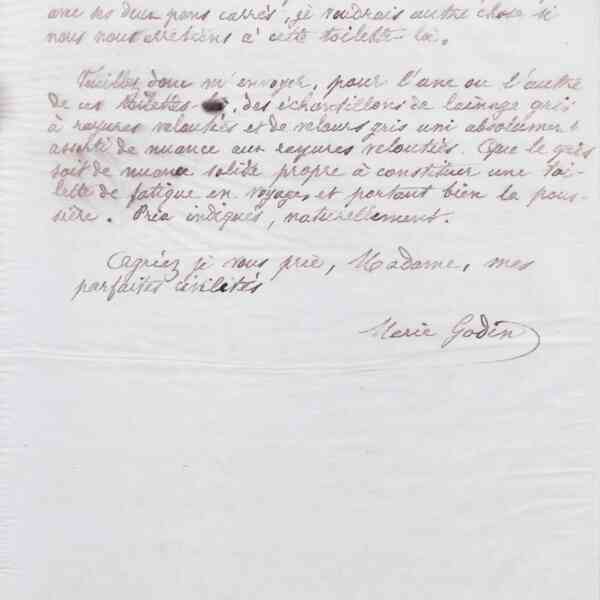 avec ses deux pans carrés, je voudrais autre chose si
nous nous arrêtions à cette toilette-là.
Veuillez donc m'envoyer, pour l'une ou l'autre
de ces toilettes, des échantillons de lainage gris
à rayures veloutées et de velours gris uni absolument
assorti de nuance aux rayures veloutées. Que le gris
soit de nuance solide propre à constituer une toi-
lette de fatigue en voyage, et portant bien la pous-
sière. Prix indiqués, naturellement.
Agréez je vous prie, Madame, mes
parfaites civilités
Marie Godin